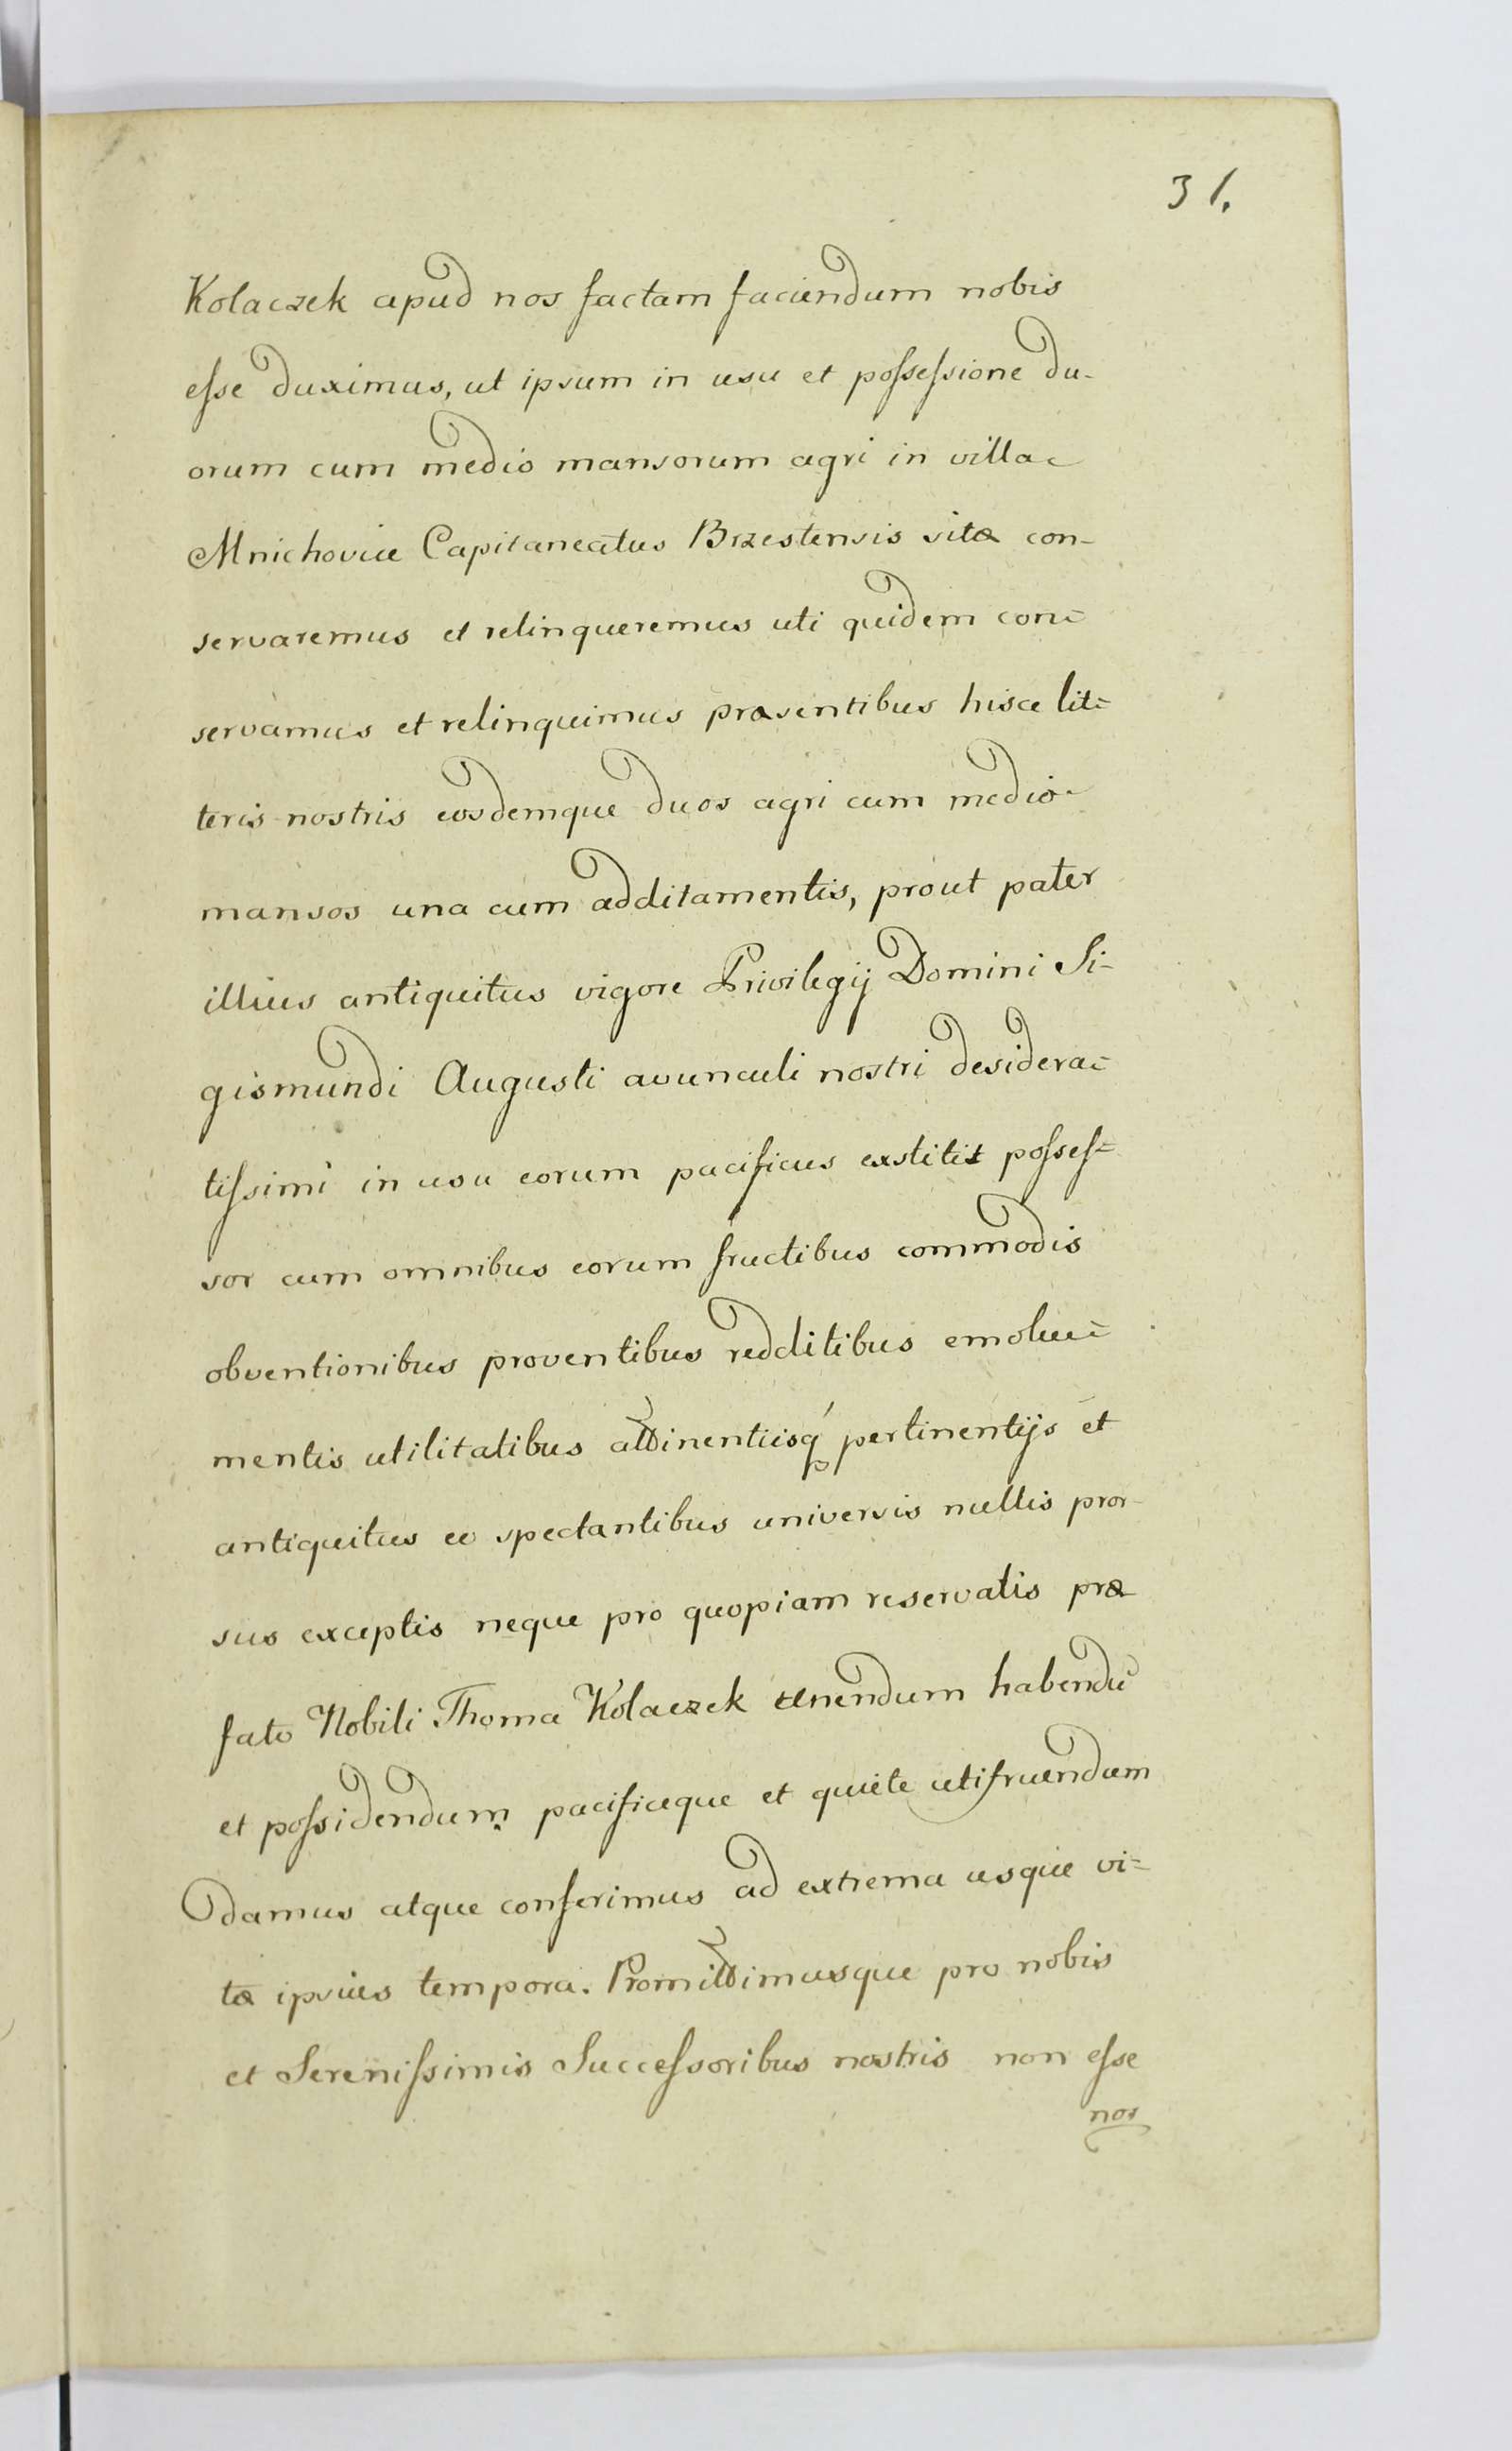 31.
Kolaczek apud nos factam faciendum nobis
eſse duximus, ut ipsum in usu et poſseſsione du-
orum cum medio mansorum agri in villa
Mnichovice Capitaneatus Brzestensis sitæ con-
servaremus et relinqueremus uti quidem con=
servamus et relinquimus præsentibus hisce lit=
teris nostris eosdemque duos agri cum medio
mansos una cum additamentis, prout pater
illius antiquitus vigore Privilegij Domini Si-
gismundi Augusti avunculi nostri desidera=
tiſsimi in usu eorum pacificus exstitit poſseſ=
sor cum omnibus eorum fructibus commodis
obventionibus proventibus redditibus emolu=
mentis utilitatibus attinentiisq́ pertinentijs et
antiquitus eo spectantibus universis nullis pror-
sus exceptis neque pro quopiam reservatis præ
fato Nobili Thoma Kolaczek tenendum habendū
et poſsidendum pacificeque et quiete utifruendum
damus atque conferimus ad extrema usque vi=
tæ ipsius tempora. Promittimusque pro nobis
et Sereniſsimis Succeſsoribus nostris non eſse
nos